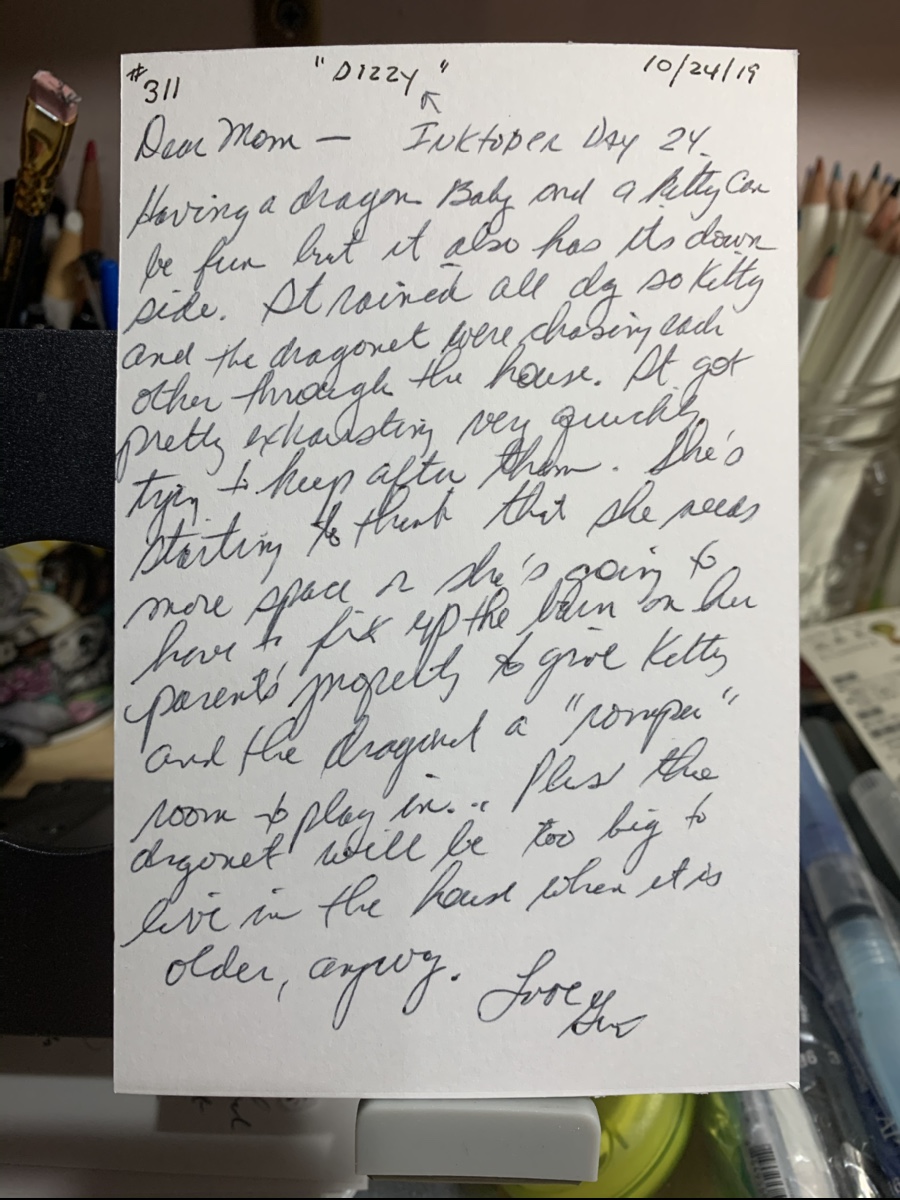 #311 "Dizzy" 10/24/19
Dear Mom — Inktober Day 24.
Having a dragon Baby and a kitty can
be fun but it also has its down
side. It rained all day so Kitty
and the dragonet were chasing each
other through the house. It got
pretty exhausting very quickly
trying to keep after them. She's
starting to think that she needs
more space or she's going to
have to fix up the barn on her
parents' property to give Kitty
and the dragonet a "romper"
room to play in... Plus the
dragonet will be too big to
live in the house when it is
older, anyway. Love